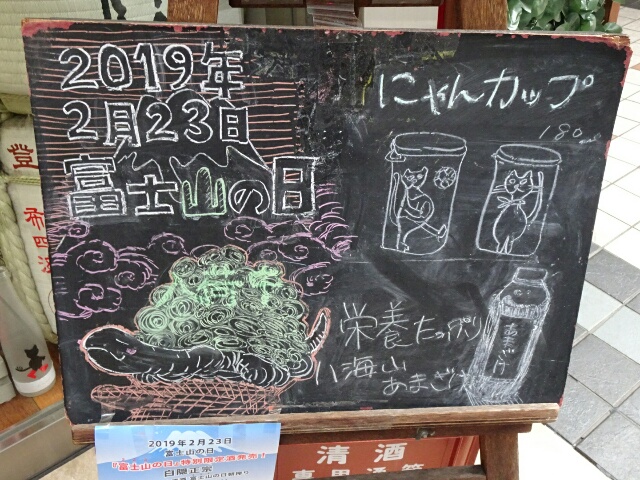 2019年
2月23日
富士山の日
にゃんカップ
180
栄養たっぷり
八海山
あまざけ
あまざけ
入荷
2019年2月23日
富士山の日
『富士山の日』特別限定酒発売!
白隠正宗
清酒
登